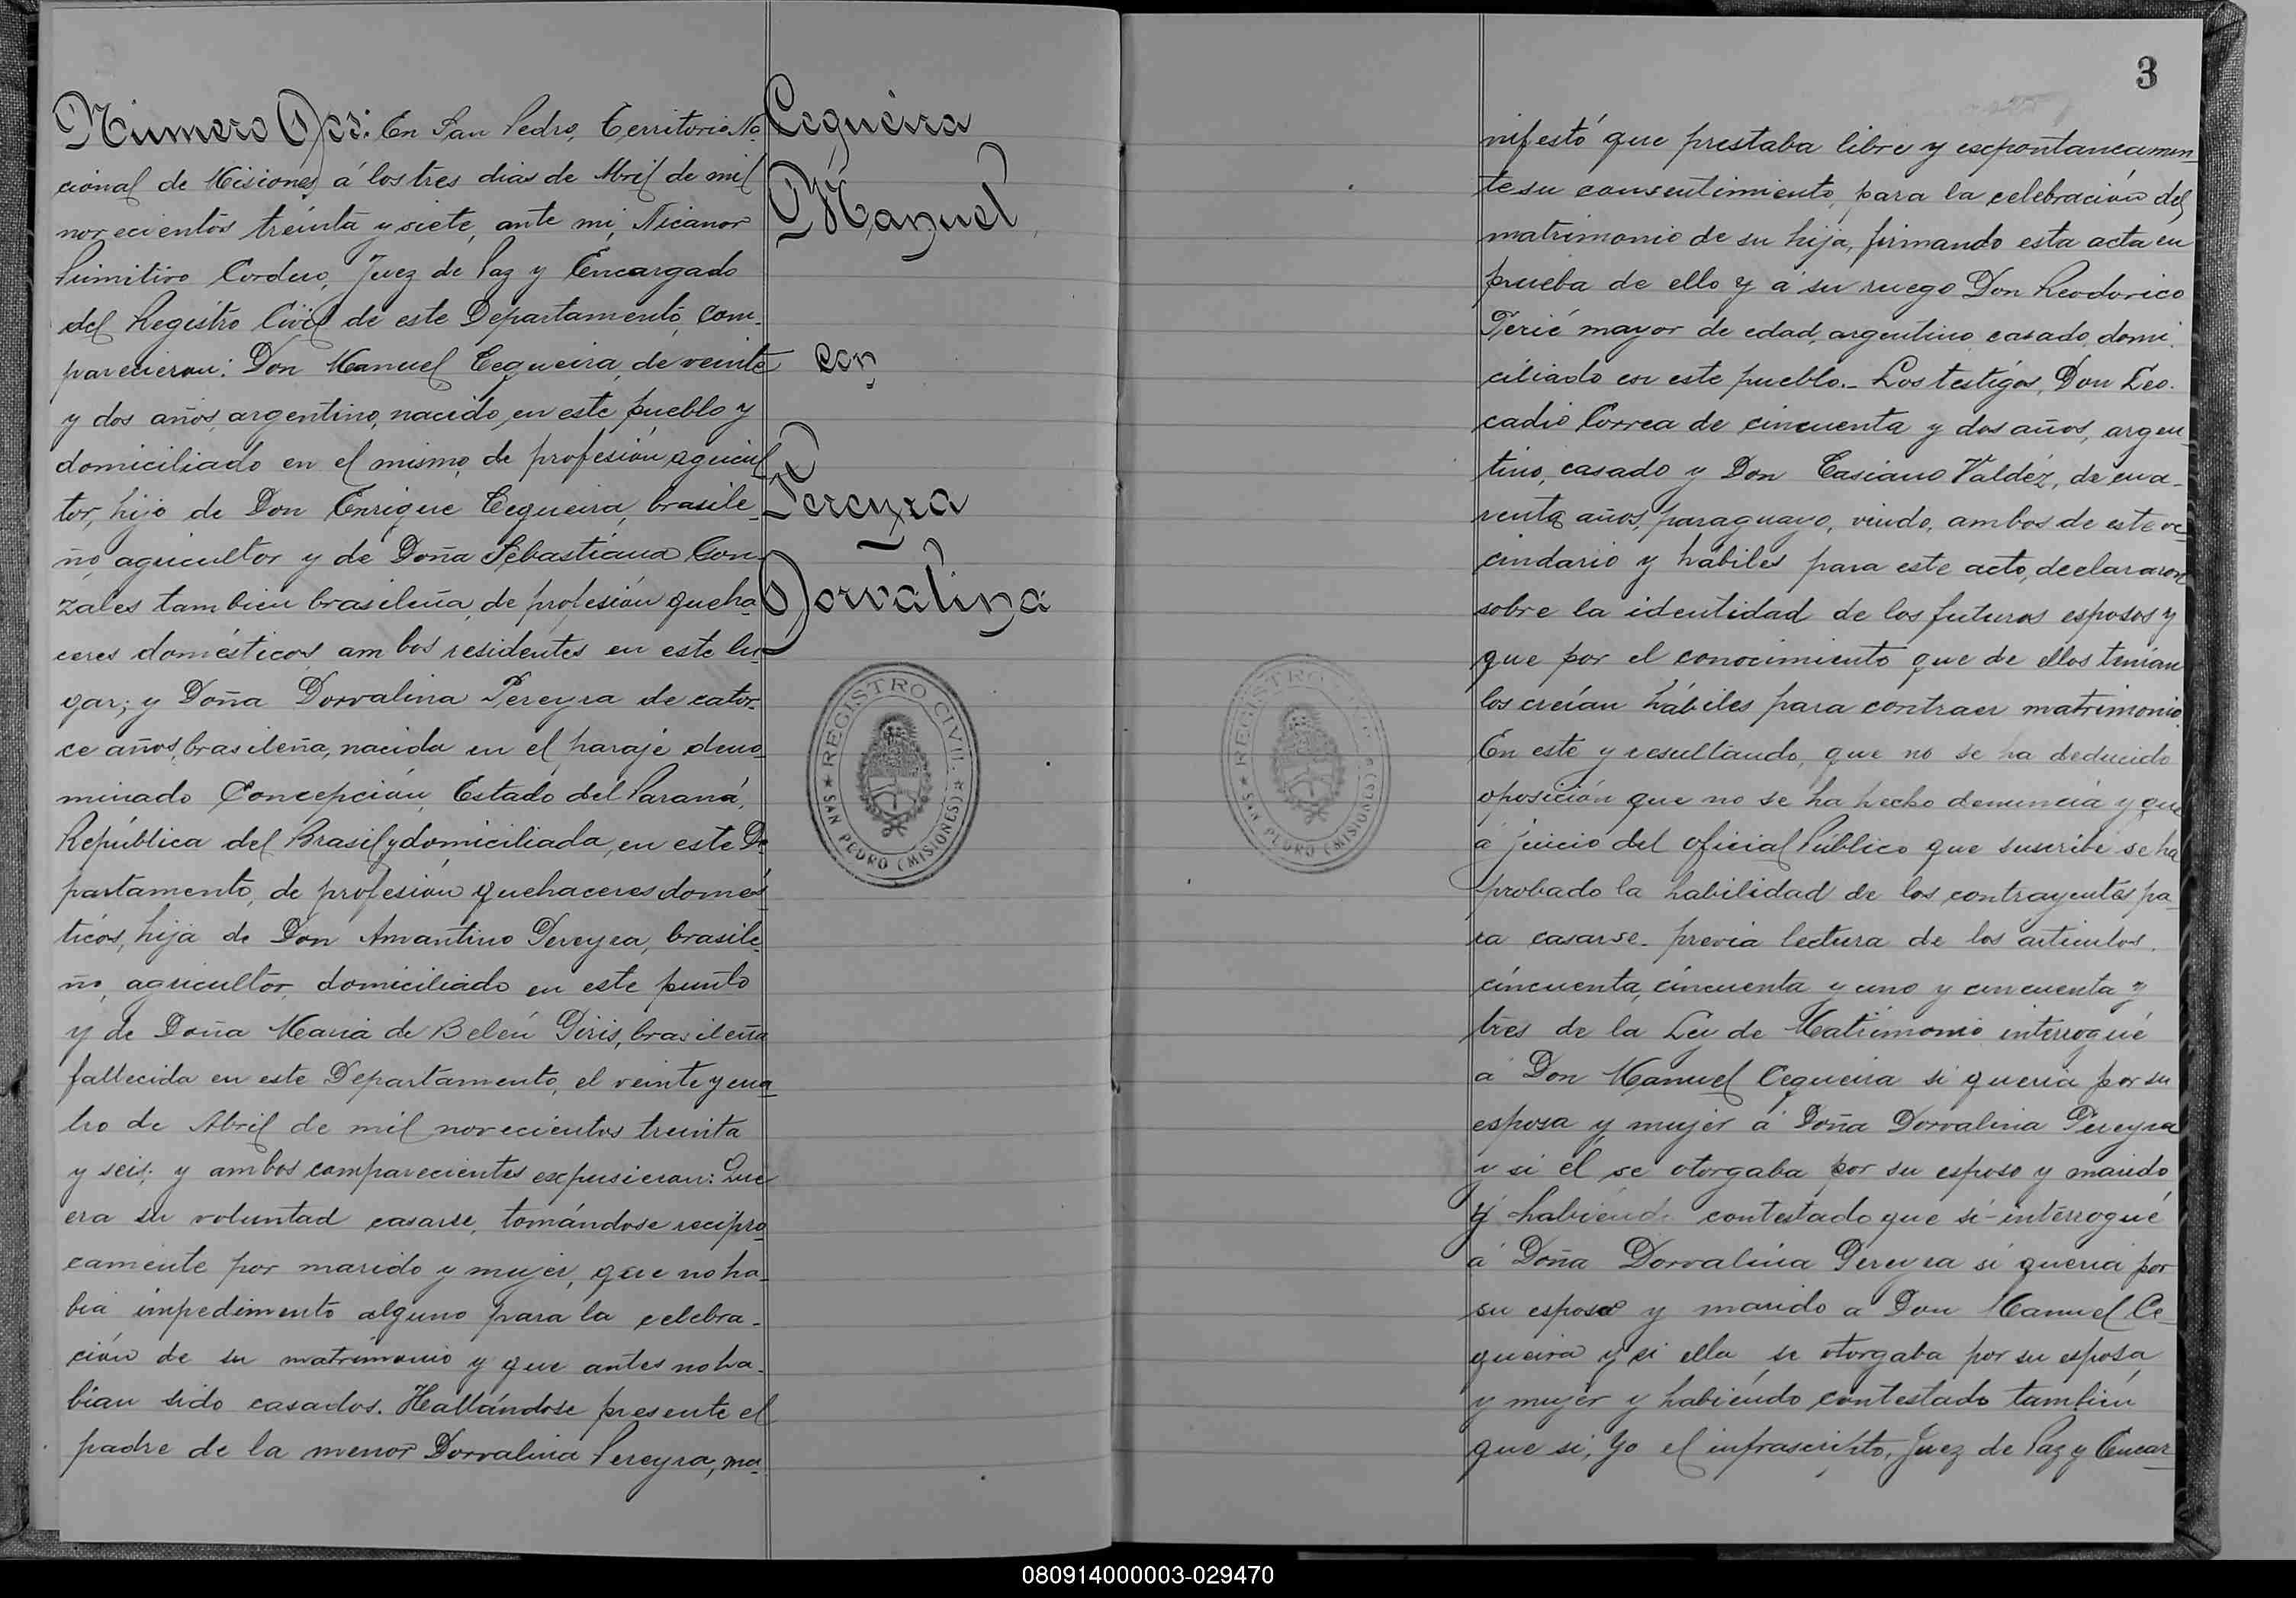 Número Dos: En San Pedro, Territorio Na
cional de Misiones, á los tres dias de Abril de mil
novecientos treinta y siete, ante mi, Nicanor
Primitivo Cordero, Juez de Paz y Encargado
del Registro Civil de este Departamento, com-
parecieron: Don Manuel Cequeira, de veinte
y dos años, argentino, nacido en este pueblo y
domiciliado en el mismo, de profesión agricul
tor, hijo de Don Enrique Cequeira, brasile-
ño, agricultor y de Doña Sebastiana Gon-
zales tambien brasileña, de profesión queha-
ceres domésticos, ambos residentes en este lu-
gar; y Doña Dorvalina Pereyra de cator-
ce años, brasileña, nacida en el paraje deno-
minado Concepción, Estado del Paraná,
República del Brasil y domiciliada en este De
partamento, de profesión quehaceres domés-
ticos, hija de Don Amantino Pereyra, brasile-
ño, agricultor, domiciliado en este punto
y de Doña Maria de Belén Piris, brasileña
fallecida en este Departamento, el veinte y cua-
tro de Abril de mil novecientos treinta
y seis; y ambos comparecientes expusieron: Que
era su voluntad casarse, tomándose recipro-
camente por marido y mujer, que no ha-
bia impedimento alguno para la celebra-
ción de su matrimonio y que antes no ha-
bían sido casados. Hallándose presente el
padre de la menor Dorvalina Pereyra, ma-
Cequeira
Manuel
con
Pereyra
Dorvalina
REGISTRO CIVIL
SAN PEDRO (MISIONES)
3
nifestó que prestaba libre y expontaneamen-
te su consentimiento, para la celebración del
matrimonio de su hija, firmando esta acta en
prueba de ello y á su ruego Don Leodorico
Perié mayor de edad, argentino casado, domi-
ciliado en este pueblo.- Los testigos, Don Leo-
cadio Correa de cincuenta y dos años, argen-
tino, casado y Don Casiano Valdéz, de cua-
renta años, paraguayo, viudo, ambos de este ve-
cindario y hábiles para este acto, declararon
sobre la identidad de los futuros esposos y
que por el conocimiento que de ellos tenían
los creían hábiles para contraer matrimonio.
En este y resultando, que no se ha deducido
oposición que no se ha hecho denuncia y que
á juicio del oficial Público que suscribe se ha
probado la habilidad de los contrayentes pa-
ra casarse. previa lectura de los articulos.
cincuenta, cincuenta y uno y cincuenta y
tres de la Ley de Matrimonio interrogué
á Don Manuel Cequeira si queria por su
esposa y mujer á Doña Dorvalina Pereyra
y si el se otorgaba por su esposo y marido
y habiendo contestado que sí - interrogué
á Doña Dorvalina Pereyra si queria por
su esposo y marido a Don Manuel Ce-
queira y si ella se otorgaba por su esposa
y mujer y habiendo contestado tambien
que si, Yo el infrascripto, Juez de Paz y Encar-
REGISTRO CIVIL
SAN PEDRO (MISIONES)
080914000003-029470